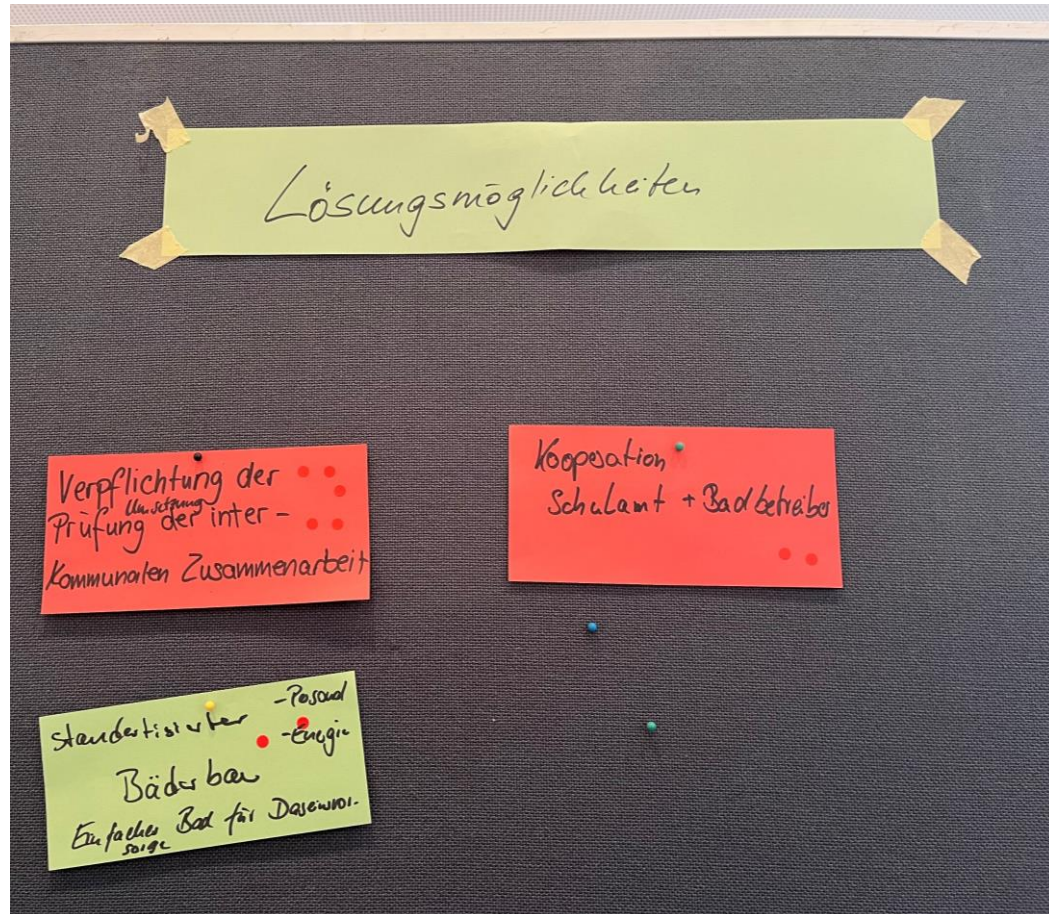 Lösungsmöglichkeiten
Verpflichtung der
Umsetzung
Prüfung der inter-
Kommunalen Zusammenarbeit
Kooperation
Schulamt + Badbetreiber
standartisierter
- Personal
- Energie
Bäderbau
Einfaches Bad für Daseinsvor-
sorge